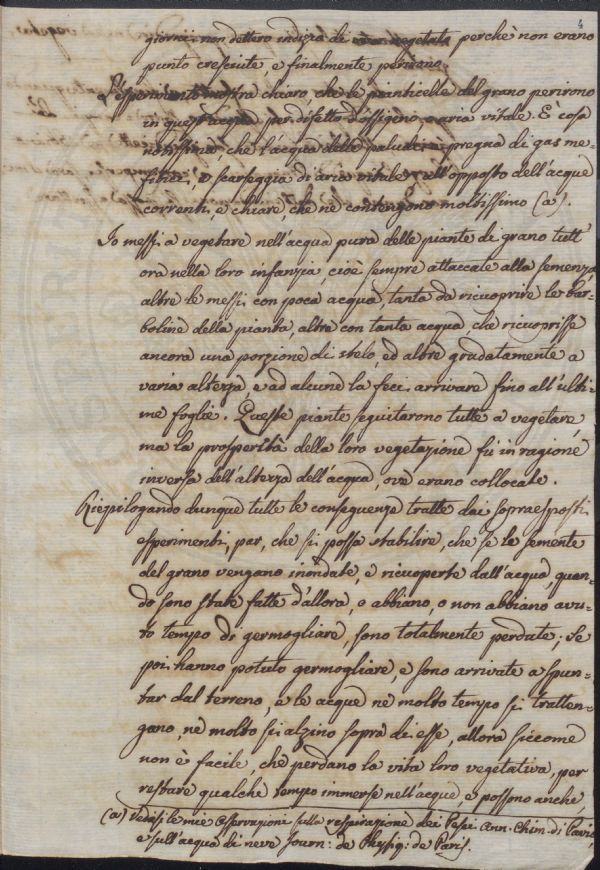 4
giorni non dettero indizia di vegetata perchè non erano
punto cresciute, e finalmente perirono.
L'esperimento mostra chiaro che le pianticelle del grano perirono
in quest'acqua per difetto d'ossigeno o aria vitale. È cosa
notissima, che l'acqua delle paludi è pregna di gas me-
fitici, e scarseggia di aria vitale all'opposto dell'acque
correnti, e chiare, che ne contengono moltissimo (a).
Io messi a vegetare nell'acqua pura delle piante di grano tutt'
ora nella loro infanzia, cioè sempre attaccate alla semenza,
altre le messi con poca acqua, tanta da ricuoprire le bar-
boline della pianta, altre con tanta acqua, che ricuoprisse
ancora una porzione di stelo, ed altre gradatamente a
varia altezza, e ad alcune la feci arrivare fino all'ulti-
me foglie. Queste piante seguitarono tutte a vegetare,
ma la prosperità della loro vegetazione fù in ragione
inversa dell'altezza dell'acqua, ove erano collocate.
Riepilogando dunque tutte le conseguenze tratte dai sopraesposti
esperimenti, par, che si possa stabilire, che se le semente
del grano vengano inondate, e ricuoperte dall'acqua, quan-
do sono state fatte d'allora, o abbiano, o non abbiano avu-
to tempo di germogliare, sono totalmente perdute; se
poi hanno potuto germogliare, e sono arrivate a spun-
tar dal terreno, e le acque nè molto tempo si tratten-
gano, nè molto si alzino sopra di esse, allora siccome
non è facile, che perdano la vita loro vegetativa, per
restare qualche tempo immerse nell'acque, e possono anche,
(a) Vedasi le mie osservazioni sulla respirazione dei Pesci Ann. Chim. di Pavia,
e sull'acqua di neve Journ: de Physiq: de Paris.